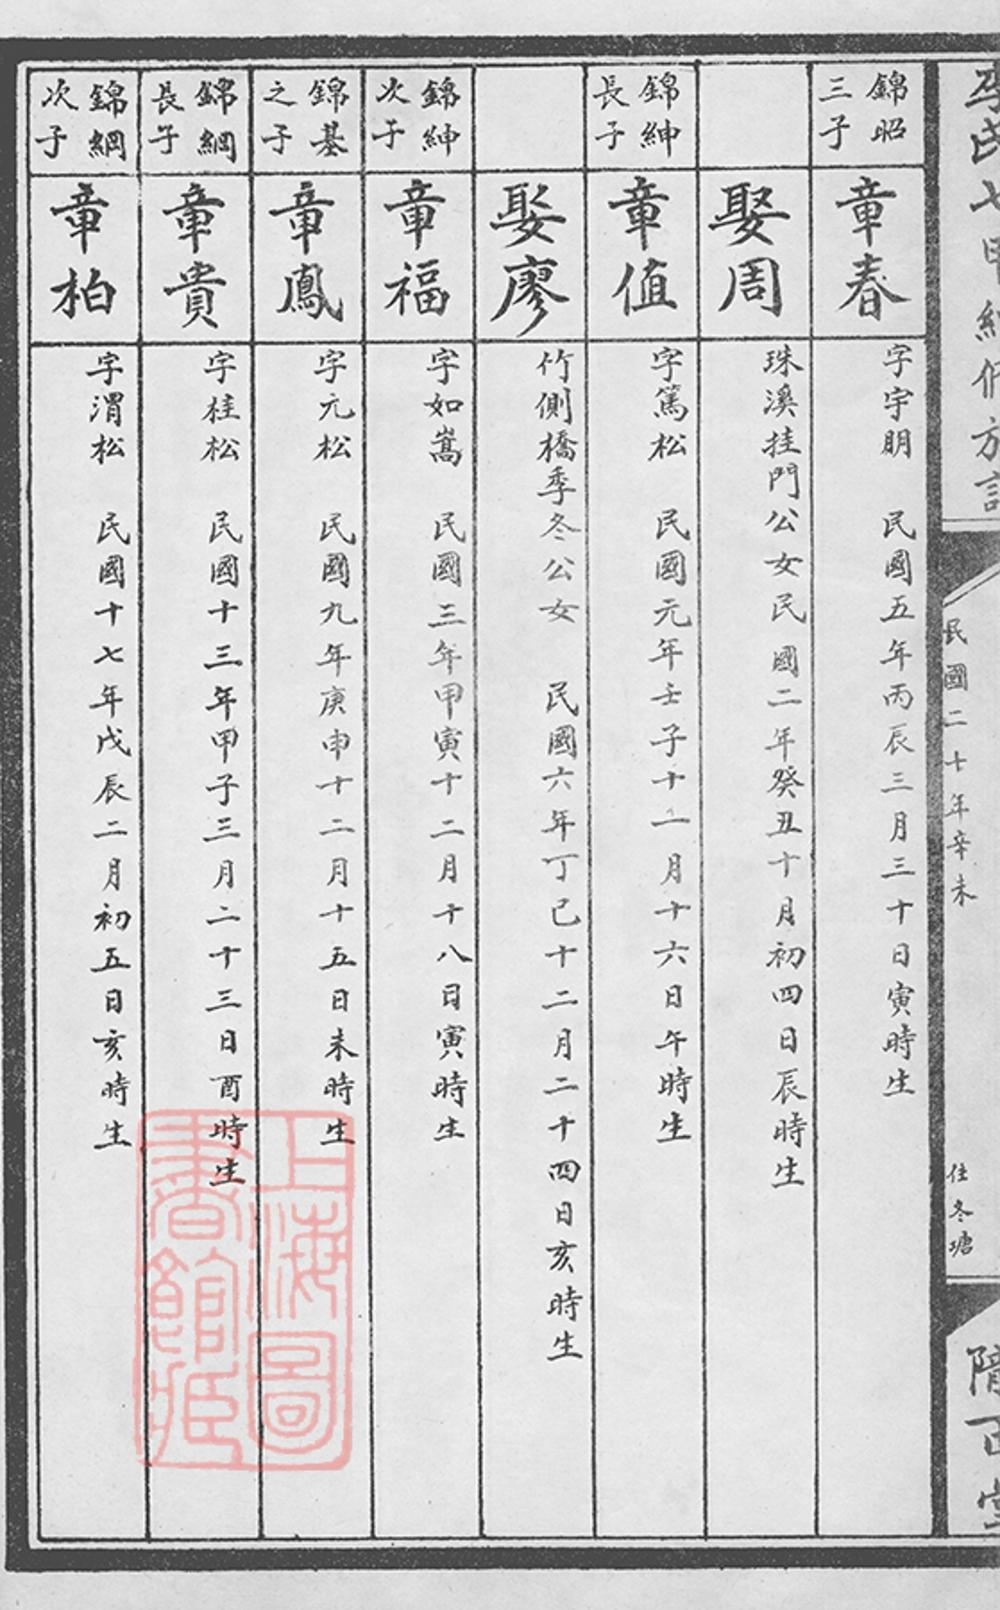 李氏七甲續修方譜
民國二十年辛未
住冬瑭
隋正堂
錦昭
三子
章春
字宇朋 民國五年丙辰三月三十日寅時生
娶周
珠溪挂門公女民國二年癸丑十月初四日辰時生
錦紳
長子
章值
字篤松 民國元年壬子十一月十六日午時生
娶廖
竹側橋季冬公女 民國六年丁巳十二月二十四日亥時生
錦紳
次子
章福
字如嵩 民國三年甲寅十二月十八日寅時生
錦基
之子
章鳳
字元松 民國九年庚申十二月十五日未時生
錦綱
長子
章貴
字桂松 民國十三年甲子三月二十三日酉時生
錦綱
次子
章柏
字渭松 民國十七年戊辰二月初五日亥時生
上海圖
書館藏